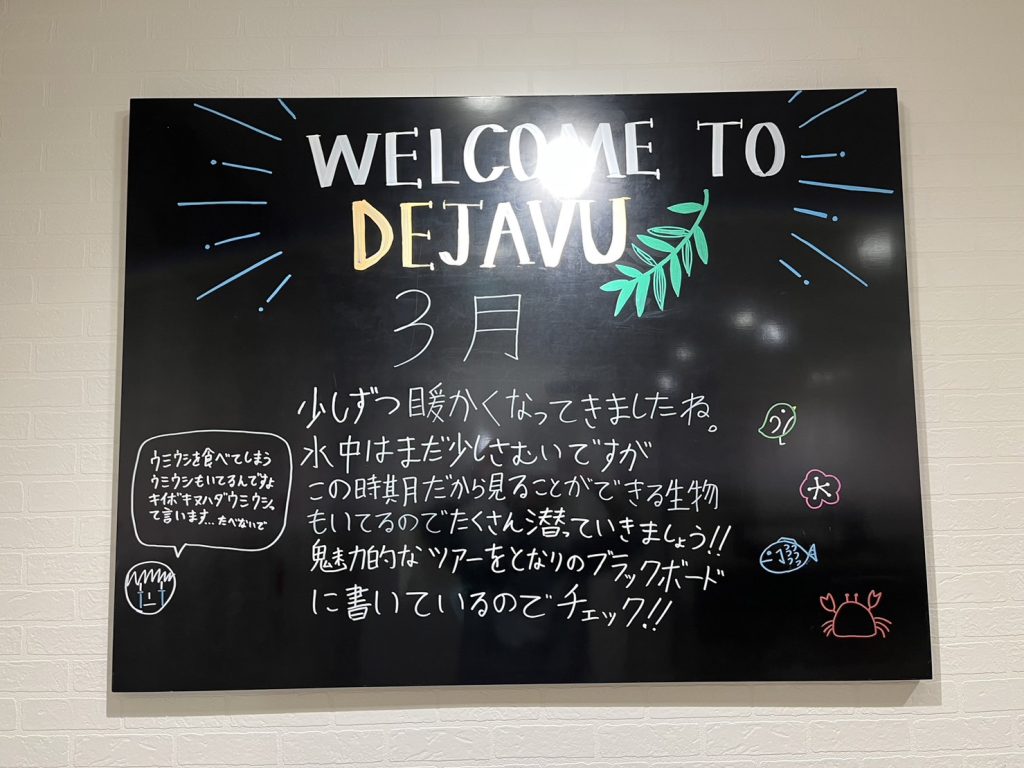 WELCOME TO
DEJAVU
3月
少しずつ暖かくなってきましたね。
水中はまだ少しさむいですが
この時期だから見ることができる生物
もいてるのでたくさん潜っていきましょう!!
魅力的なツアーをとなりのブラックボード
に書いているのでチェック!!
ウミウシを食べてしまう
ウミウシもいてるんですよ
キイボキヌハダウミウシ
て言います...たべないで
大